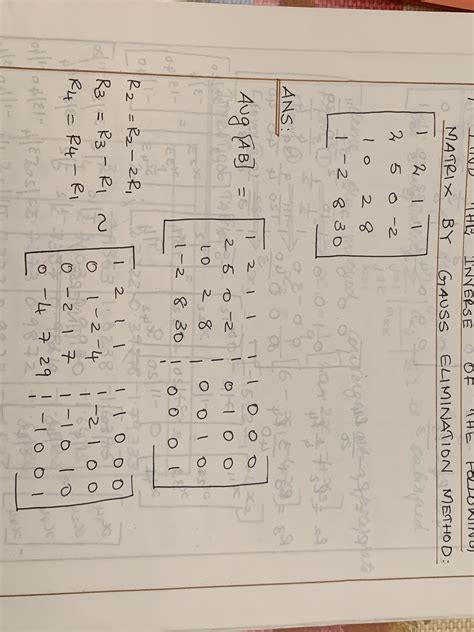 FIND THE INVERSE OF THE FOLLOWING
MATRIX BY GAUSS ELIMINATION METHOD:
1 2 1 1
2 5 0 -2
1 0 2 8
1 -2 8 30
ANS:
Aug [AB] =
1 2 1 1 | 1 0 0 0
2 5 0 -2 | 0 1 0 0
1 0 2 8 | 0 0 1 0
1 -2 8 30 | 0 0 0 1
R2 = R2 - 2R1
R3 = R3 - R1 ~
R4 = R4 - R1
1 2 1 1 | 1 0 0 0
0 1 -2 -4 | -2 1 0 0
0 -2 1 7 | -1 0 1 0
0 -4 7 29 | -1 0 0 1